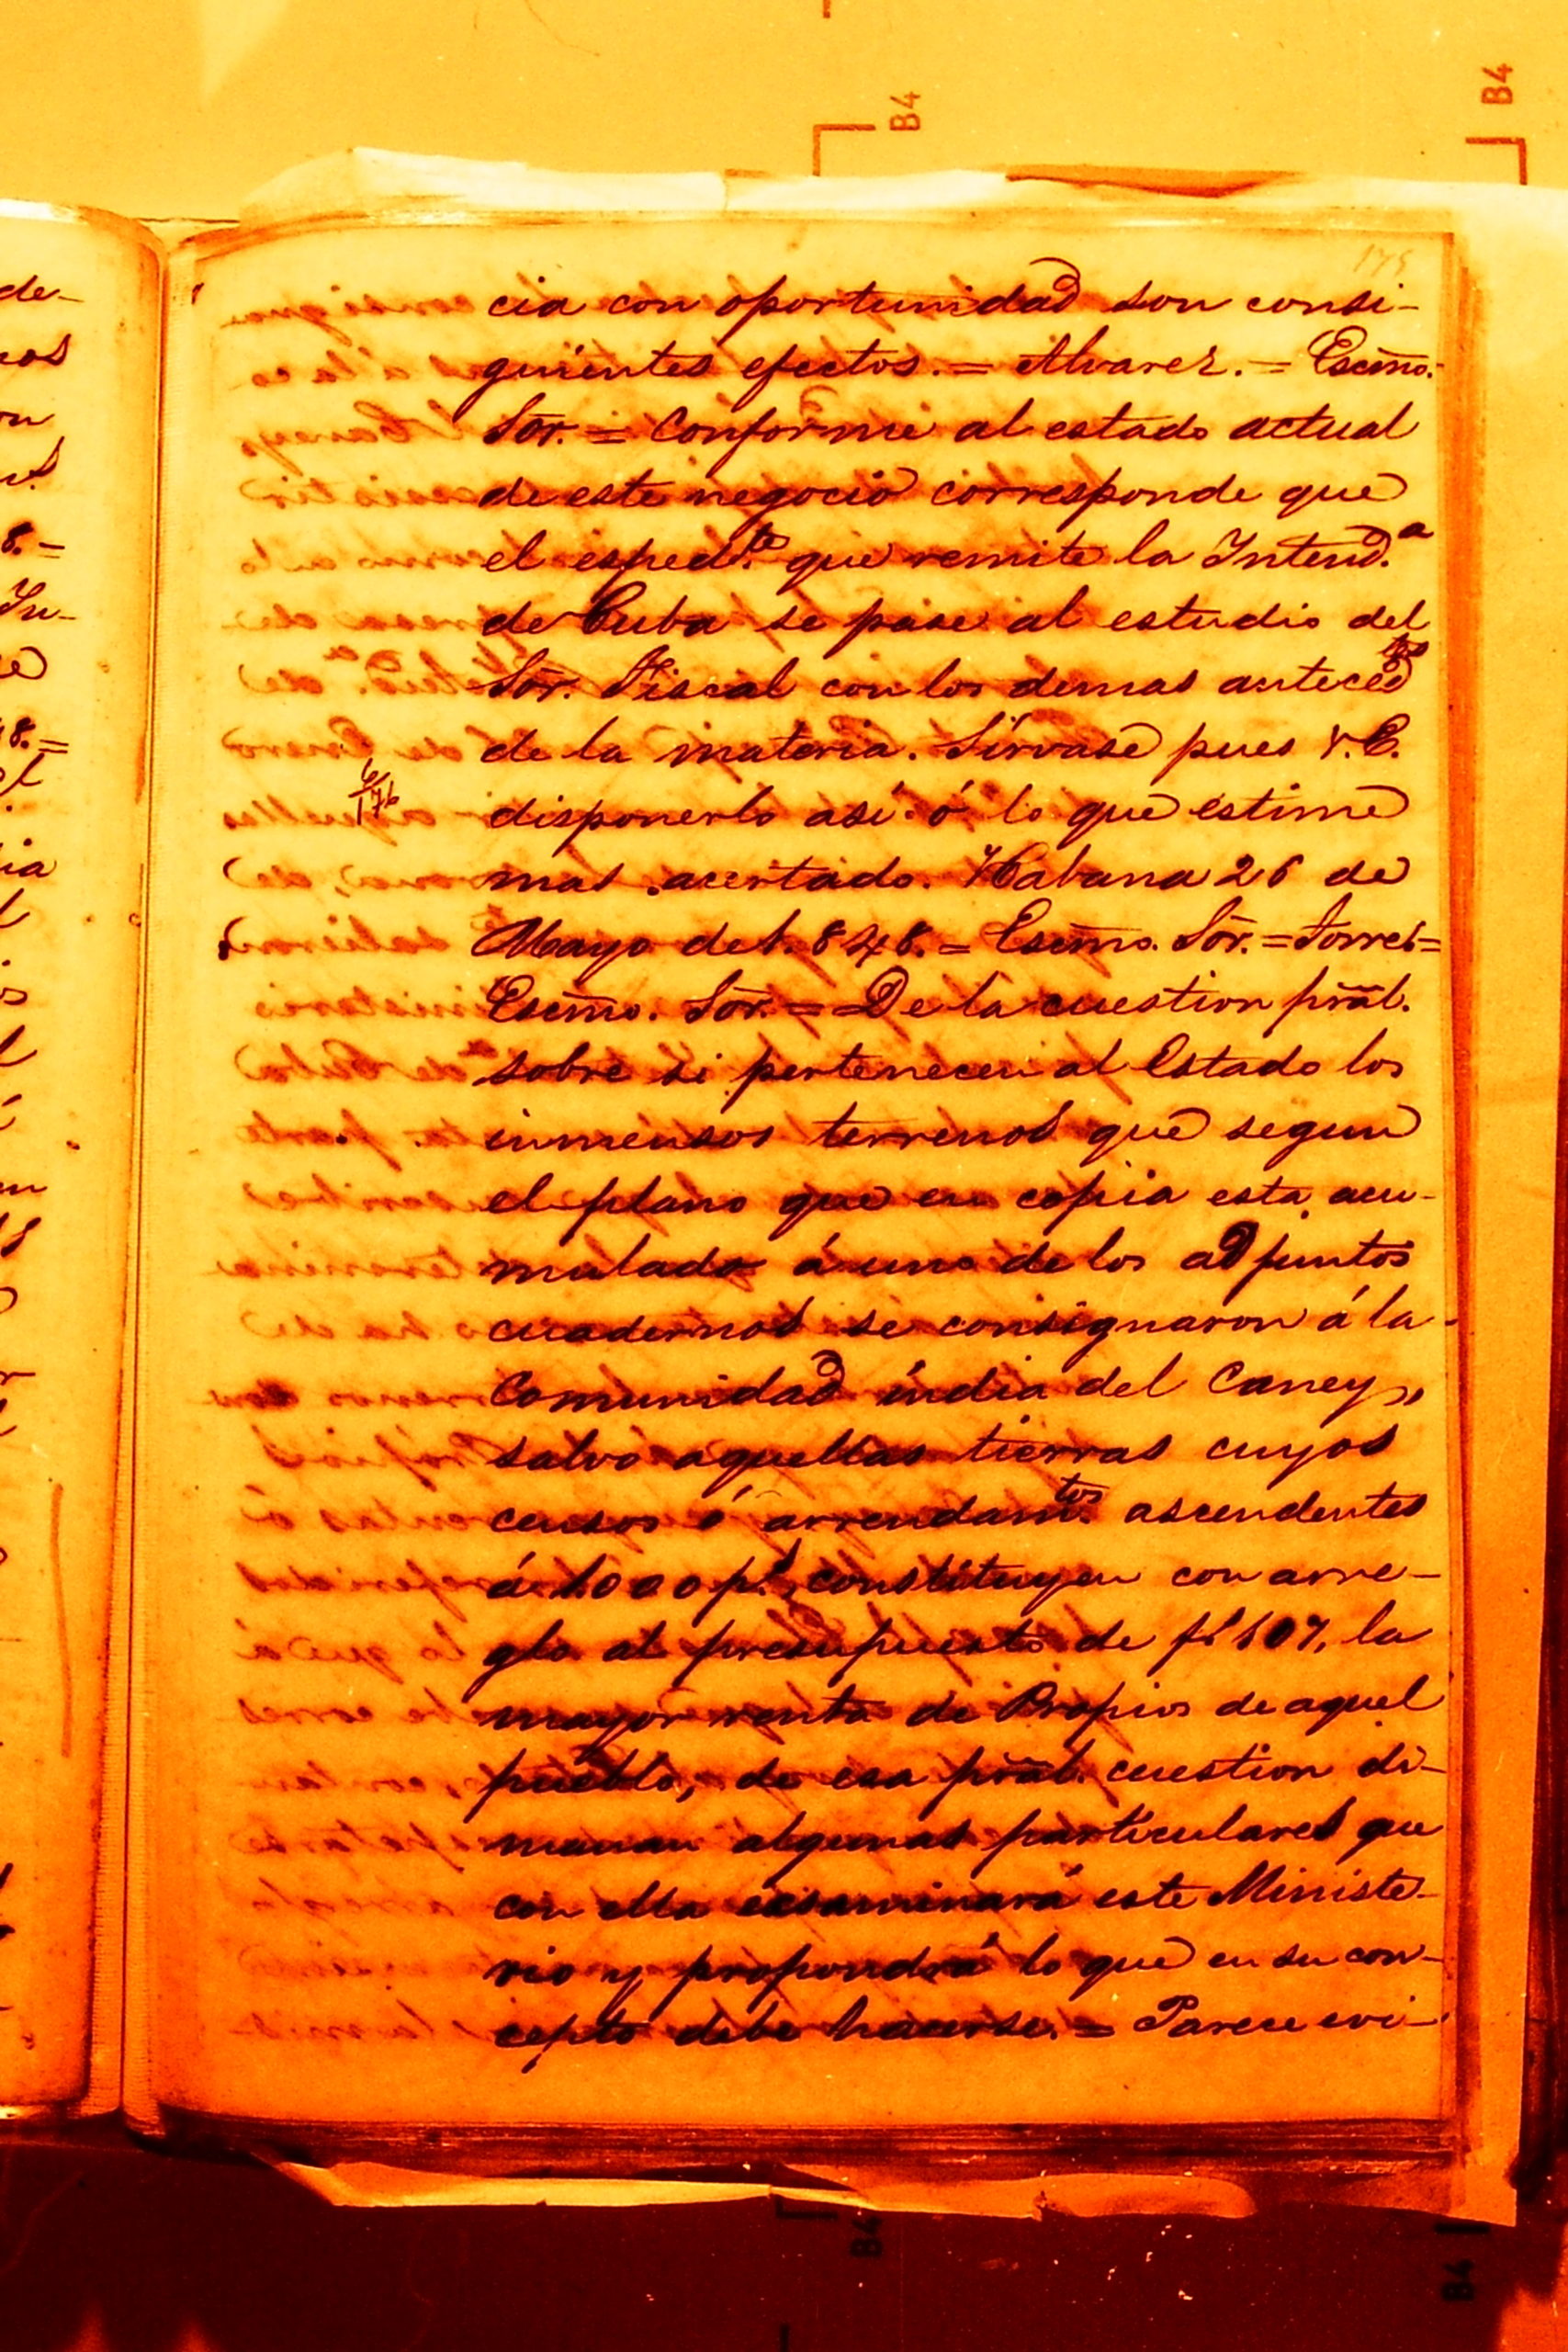 B4
B4
175
cia con oportunidad son consi-
guientes efectos. = Alvarez. = Escmo.
Sōr. = Conforme al estado actual
de este negocio corresponde que
el esped.te que remite la Intend.a
de Cuba se pase al estudio del
Sōr. Fiscal con los demas anteced.tes
de la materia. Sírvase pues V.E.
disponerlo así ó lo que estime
mas acertado. Habana 26 de
Mayo de 1.848. = Escmo. Sōr. = Torres =
Escmo. Sōr. = De la cuestion prāl.
sobre si pertenecen al Estado los
inmensos terrenos que segun
el plano que en copia esta acu-
mulado á uno de los adjuntos
cuadernos se consignaron á la
Comunidad índia del Caney,
salvo aquellas tierras cuyos
censos ó arrendam.tos ascendentes
á 1.000 p.s constituyen con arre-
glo al presupuesto de f.s 107, la
mayor renta de Propios de aquel
pueblo, de esa prāl. cuestion di-
manan algunas particulares que
con ella ecsaminará este Ministe-
rio y propondrá lo que en su con-
cepto debe hacerse. = Parece evi-
6/176
B4
B4